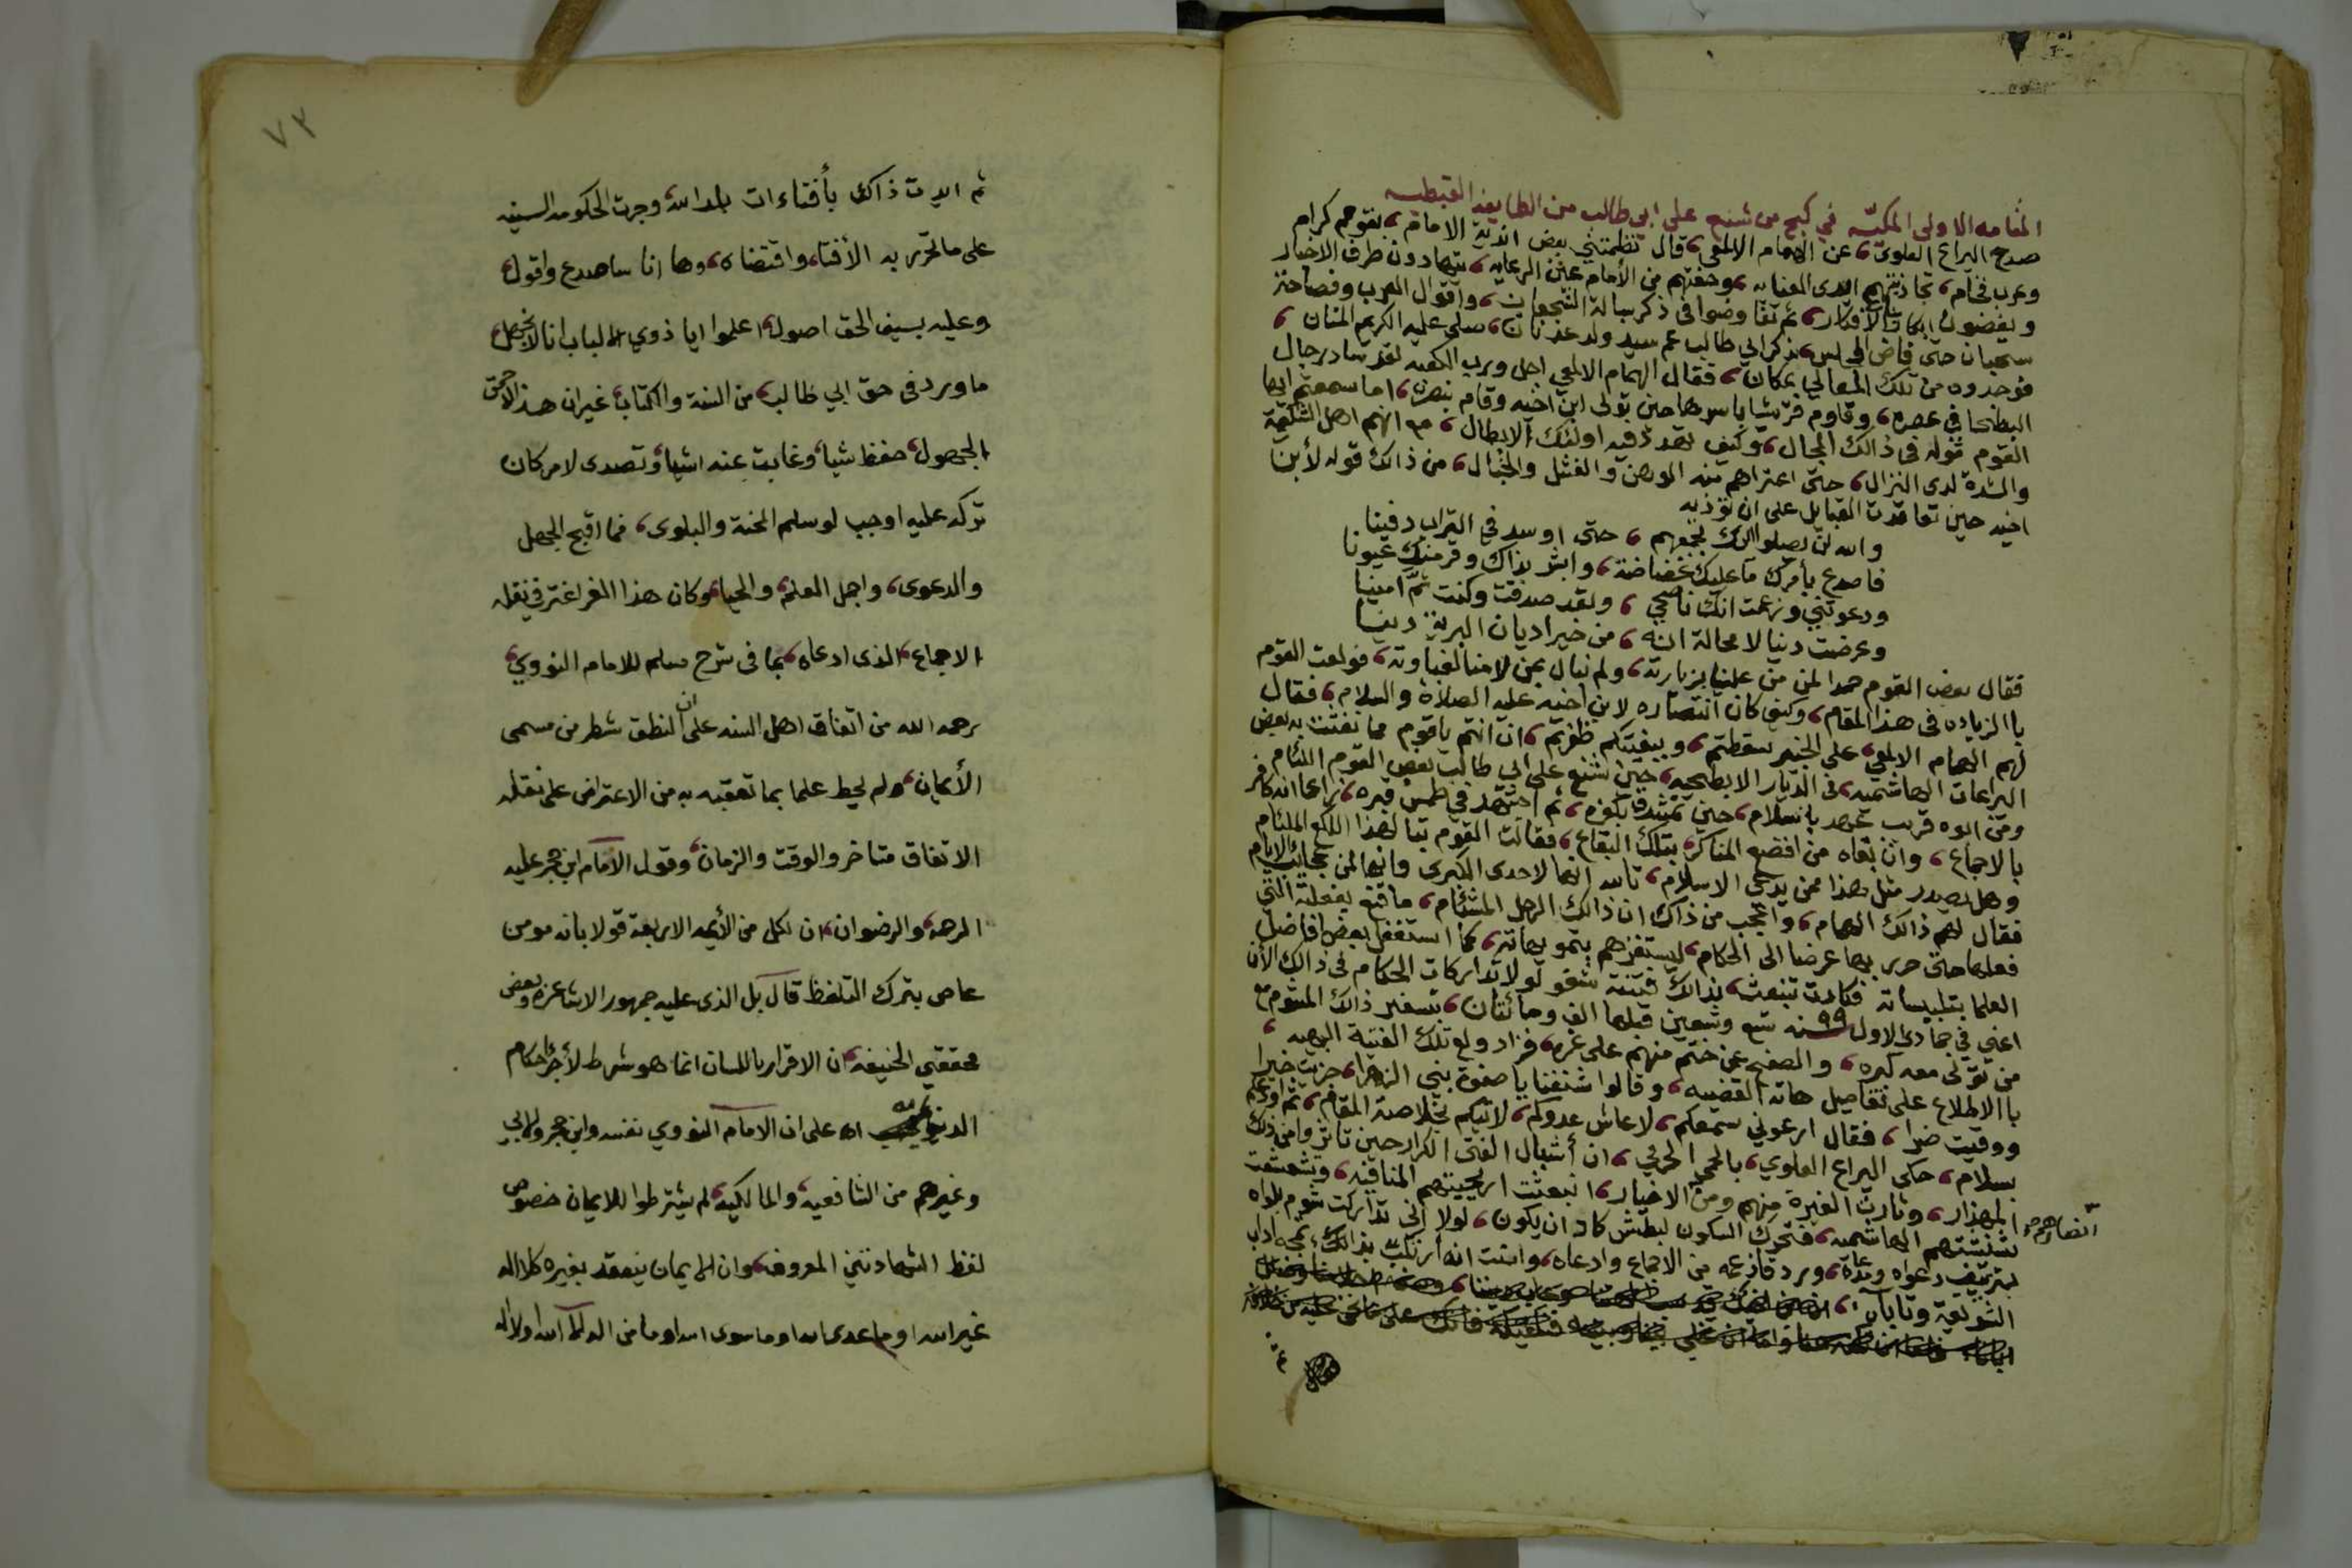 المقامه الاولى المكيه في كبح من شنع على ابي طالب من الطايفه القبطيه
صدح اليراع العلوي، عن الهمام الالمعي، قال نظمتني بعض اندية الامام، بقوم كرام
وعرب فخام، تجاذبتهم ايدى العنايه، وحفتهم من الأمام عين الرعايه، يتهادون طرف الاخبار
ويفضون ابكار الافكار، ثم تفاوضوا في ذكر بسالة الشجعان، واقوال العرب وفصاحة
سحبان حتى فاض المجلس بذكر ابي طالب عم سيد ولد عدنان، صلى عليه الكريم المنان،
فوجدوه من تلك المعالي بمكان، فقال الهمام الالمعي اجل ورب الكعبه لقد ساد رجال
البطحا في عصره، وقاوم قريشا باسرها حين تولى ابن اخيه وقام بنصره، اما سمعتم ايها
القوم قوله في ذالك المجال، وكيف تهدد فيه اولئك الابطال، مع انهم اهل الشكيمة
والشدة لدى النزال، حتى اعتراهم منه الوهن والفشل والخبال، من ذالك قوله لأبن
اخيه حين تعاقدت القبايل على ان تؤذيه
والله لن يصلوا اليك بجمعهم، حتى اوسد في التراب دفينا
فاصدع بأمرك ما عليك غضاضة، وابشر بذاك وقر منك عيونا
ودعوتني وزعمت انك ناصحي، ولقد صدقت وكنت ثم امينا
وعرضت دينا لا محالة انه، من خير اديان البرية دينا
فقال بعض القوم حمدا لمن من علينا بزيارته، ولم نبال بمن لامنا لغباوته، فولعت القوم
با الزياده في هذا المقام، وكيف كان انتصاره لابن اخيه عليه الصلاة والسلام، فقال
لهم الهمام الالمعي، على الخبير سقطتم، وببغيتكم ظفرتم، ان انتم ياقوم مما نفثت به بعض
اليراعات الهاشميه، في الديار الابطحيه، حين شنع على ابي طالب بعض القوم اللئام
ومن الوه قريب عهد باسلام، حين تمشدق بكفره، ثم اجتهد في طمس قبره، زاعما انه كافر
بالاجماع، وان بقاه من افضع المناكر، بتلك البقاع، فقالت القوم تبا لهذا اللكع الملئام
وهل يصدر مثل هذا ممن يدعي الاسلام، تالله انها لاحدى الكبرى وانها لمن عجائب الايام
فقال لهم ذالك الهمام، واعجب من ذاك ان ذالك الرجل المشئام، ما قنع بفعلته التي
فعلها حتى حرر بها عرضا الى الحكام، ليستفزهم بتمويهاته، كما استغفل بعض افاضل
العلما بتلبيساته فكادت تنبعث بذالك فتنة شقو لولا تداركات الحكام في ذاك الأن
اعني في جمادى الاول ٩٩ سنه تسع وتسعين قبلها الف ومائتان، بتسفير ذاك المشوم مع
من تولى معه كبره، والصفح عن ختم منهم على غره، فزاد ولع تلك الفتية البهيه،
با الاطلاع على تفاصيل هاته القضيه، وقالوا شنفنا يا صفوة بني الزهرا، جزيت خيرا
ووقيت ضرا، فقال ارعوني سمعكم، لا عاش عدوكم، لاتيكم بخلاصة المقام، ثم اودعكم
بسلام، حكى اليراع العلوي، بالحمي الحربي، ان أشبال الفتى الكرار حين تاثروا من ذلك
المهذار، وثارت الغيرة منهم ومن الاخيار، انبعثت اريحيتهم المنافيه، وتشعشعت
انصارهم
شنشنتهم الهاشميه، فتحرك السكون لبطش كاد ان يكون، لولا اني تداركت شوم بلواه
بتزييف دعواه ومدعاه، ورد ما زعمه من الاجماع وادعاه، واثبت انه ارتكب بذالك
الشريعة وتاباه،
٧٣
ثم ايدت ذاك بأفتاءات بلد الله وجرت الحكومه السنيه
على ما تحرر به الأفتا، واقتضاه، وها انا ساصدع واقول
وعليه بسيف الحق اصول، اعلموا ايا ذوي الالباب انا لا نجهل
ما ورد في حق ابي طالب، من السنة والكتاب غير ان هذا الاحمق
الجهول، حفظ شيأ، وغابت عنه اشيا وتصدى لامر كان
تركه عليه اوجب لو سلم المحنة والبلوى، فما اقبح الجهل
والدعوى، واجمل العلم، والحيا، وكان هذا الغر اغتر في نقله
الاجماع، الذى ادعاه، بما في شرح مسلم للامام النووي،
رحمه الله من اتفاق اهل السنه على ان النطق شطر من مسمى
الأيمان، ولم يحط علما بما تعقبه به من الاعتراض على نقله
الاتفاق متاخر والوقت والزمان، وقول الامام ابن حجر عليه
الرحمه والرضوان، ان لكل من الأيمه الاربعة قولا بانه مومن
عاص بترك التلفظ قال بل الذى عليه جمهور الاشاعره وبعض
محققي الحنيفه ان الاقرار باللسان انما هو شرط لأجراء احكام
الدنيا اه على ان الامام النووي نفسه وابن حجر والابي
وغيرهم من الشافعيه والمالكيه لم يشترطوا للايمان خصوص
لفظ الشهادتين المعروفه وان الايمان ينعقد بغيره كلا اله
غير الله او ما عدى الله او ما سوى الله او ما من اله الا الله او لا اله